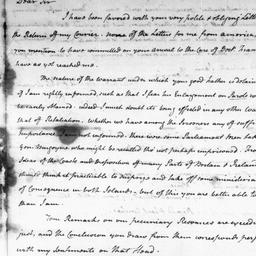 Dear Sir
I have been favored with your very polite & obliging Letter
the Return of my Courier. none of the Letters for me from america,
you mention to have committed on your account to the Care of Doct
have as yet reached me.
The nature of the warrant under which your good Father is
of I am rightly informed, such that I fear his Enlargement on Parole
recently obtained. indeed I much doubt its being effected in any other
that of Retaliation. Whether we have among the Prisoners any of suffi
Importance I am not informed. there is some Parliament men
you Burgoyne who might be recalled tho' not perhaps imprisoned. From
Ideas of the Coasts and disposition of many Parts of Scotland & Ireland
should think it practicable to surprize and take off some ministerial
of Consequence in both Islands. but of this you are better able to
than I am.
Your Remarks on our pecuniary Resources are exceed
just, and the Conclusions you draw from them corresponds per
with my Sentiments on that Head.